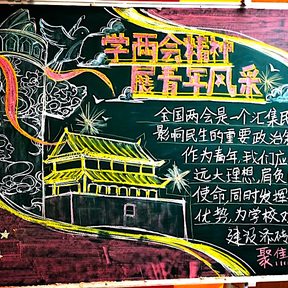 学两会精神
展青年风采
全国两会是一个汇集民
影响民生的重要政治
作为青年,我们应
远大理想,肩负
使命,同时发挥
优势,为学校
建设添砖
聚焦